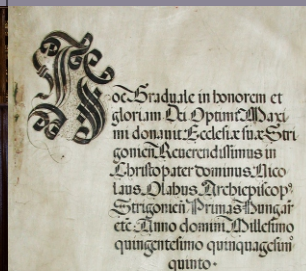 Hoc Graduale in honorem et
gloriam Dei Optimi Maxi
mi donauit Ecclesiæ suæ Stri
gonien Reuerendissimus in
Christo pater dominus Nico
laus Olahus Archiepiscopꝰ
Strigonien Primas Hungar
etc Anno domini Millesimo
quingentesimo quinquagesimo
quinto.